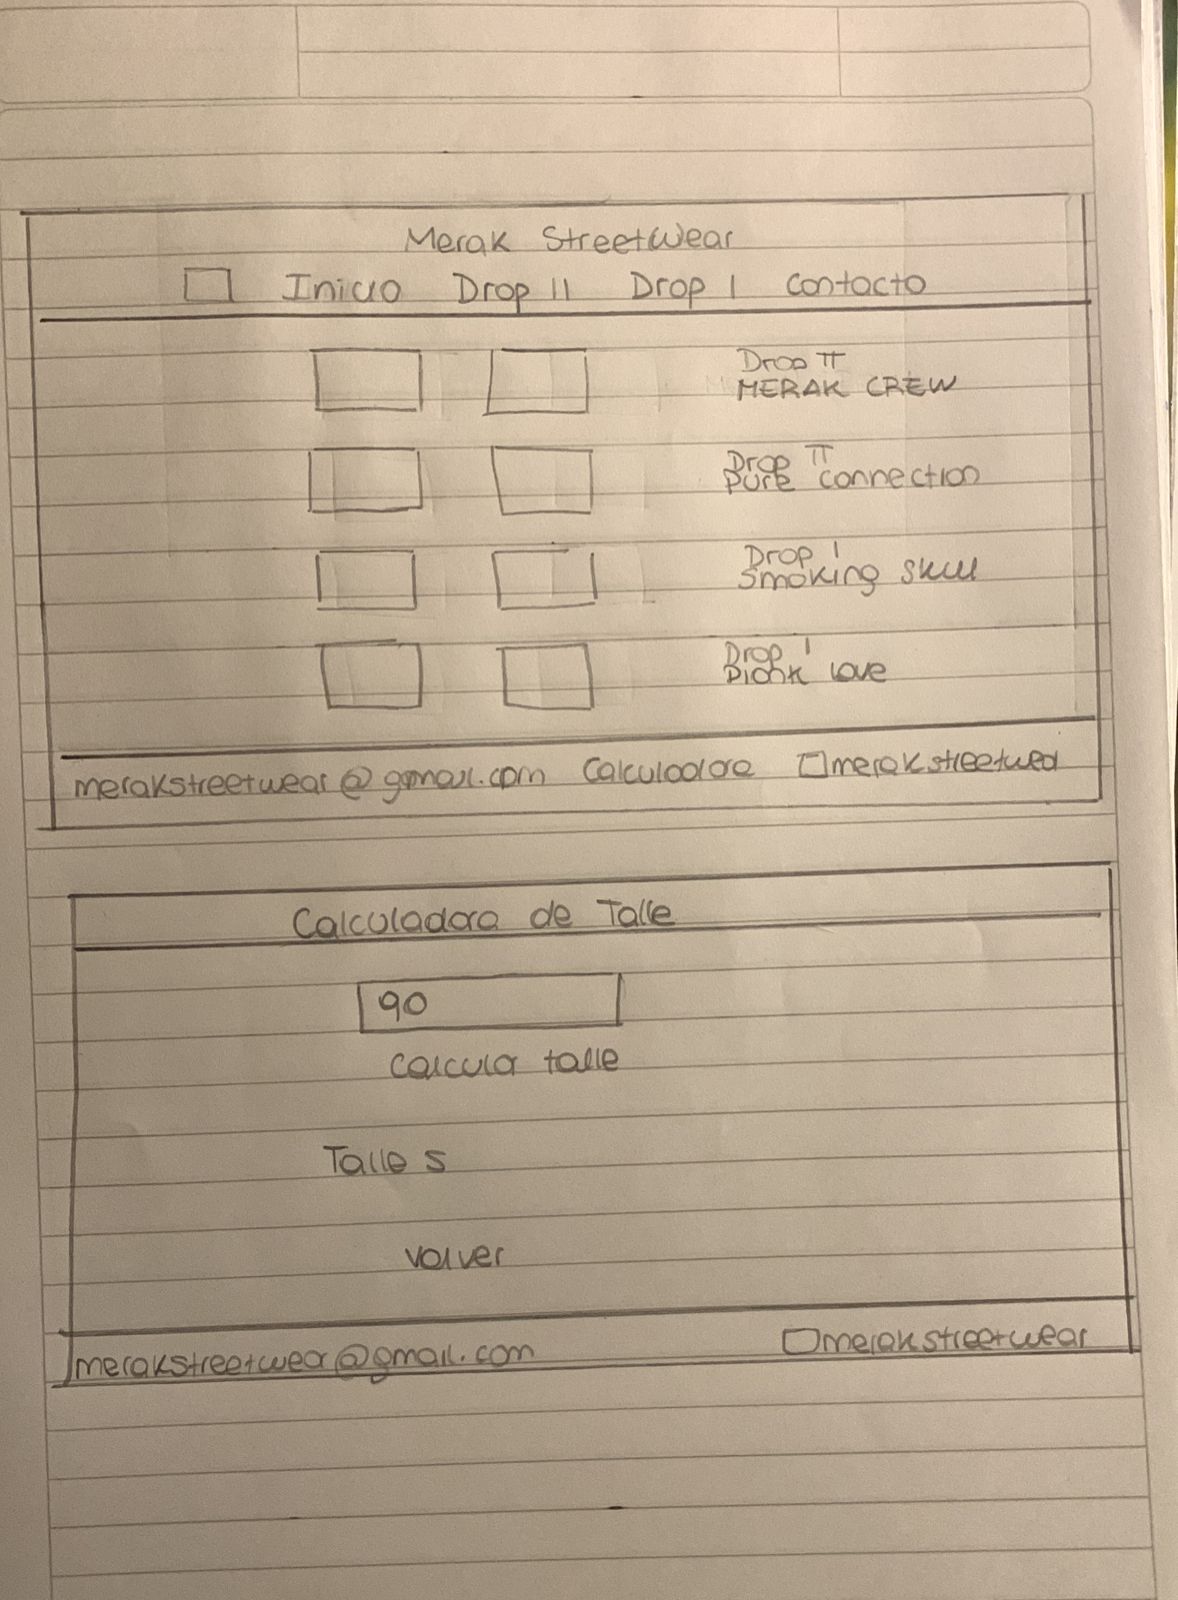 Merak StreetWear
Inicio Drop II Drop I Contacto
Drop II
MERAK CREW
Drop II
Pure connection
Drop I
Smoking skull
Drop I
love
merakstreetwear@gmail.com Calculadora merakstreetwea
Calculadora de Talle
90
Calcular talle
Talle S
volver
merakstreetwear@gmail.com merakstreetwear